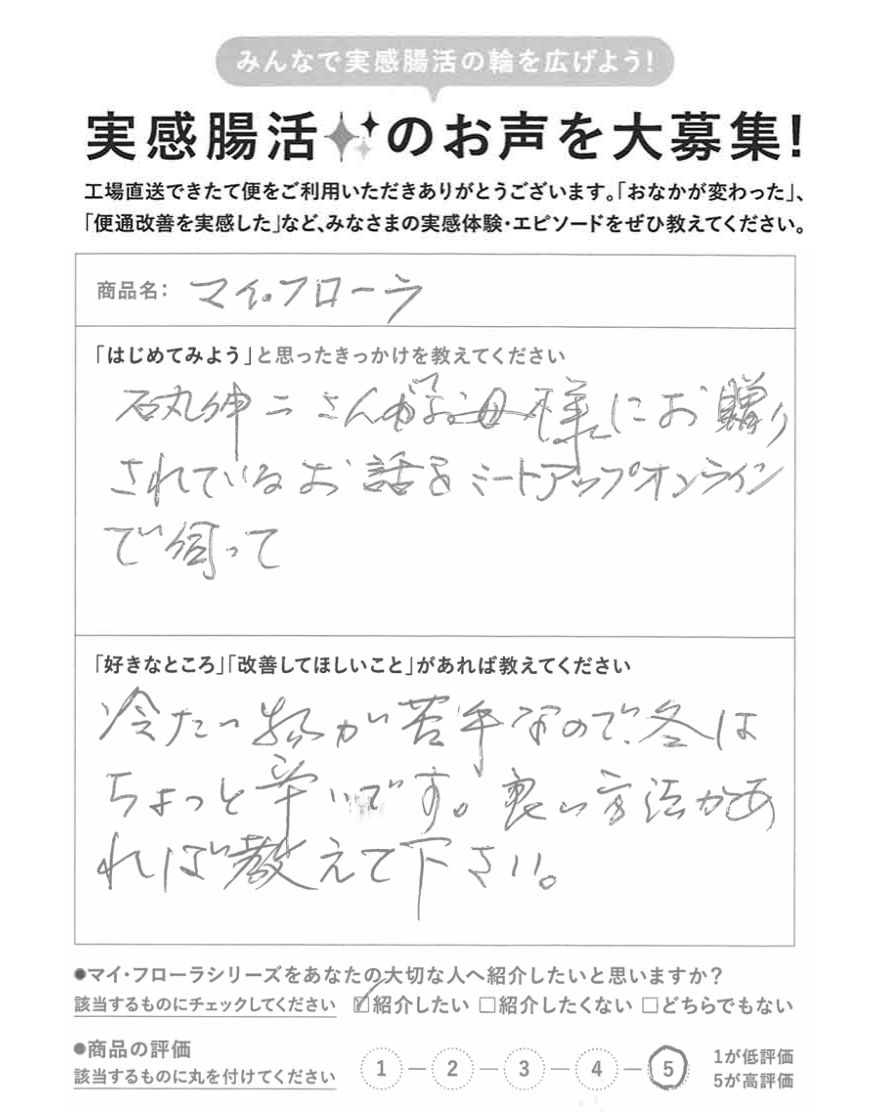 みんなで実感腸活の輪を広げよう!
実感腸活のお声を大募集!
工場直送できたて便をご利用いただきありがとうございます。「おなかが変わった」、
「便通改善を実感した」など、みなさまの実感体験・エピソードをぜひ教えてください。
商品名: マイ・フローラ
「はじめてみよう」と思ったきっかけを教えてください
石丸伸二さんがお母様にお贈り
されているお話をミートアップオンライン
で伺って
「好きなところ」「改善してほしいこと」があれば教えてください
冷たい物が苦手なので、冬は
ちょっと辛いです。良い方法があ
れば教えて下さい。
●マイ・フローラシリーズをあなたの大切な人へ紹介したいと思いますか?
該当するものにチェックしてください ☑紹介したい □紹介したくない □どちらでもない
●商品の評価
該当するものに丸を付けてください 1 2 3 4 5
1が低評価
5が高評価